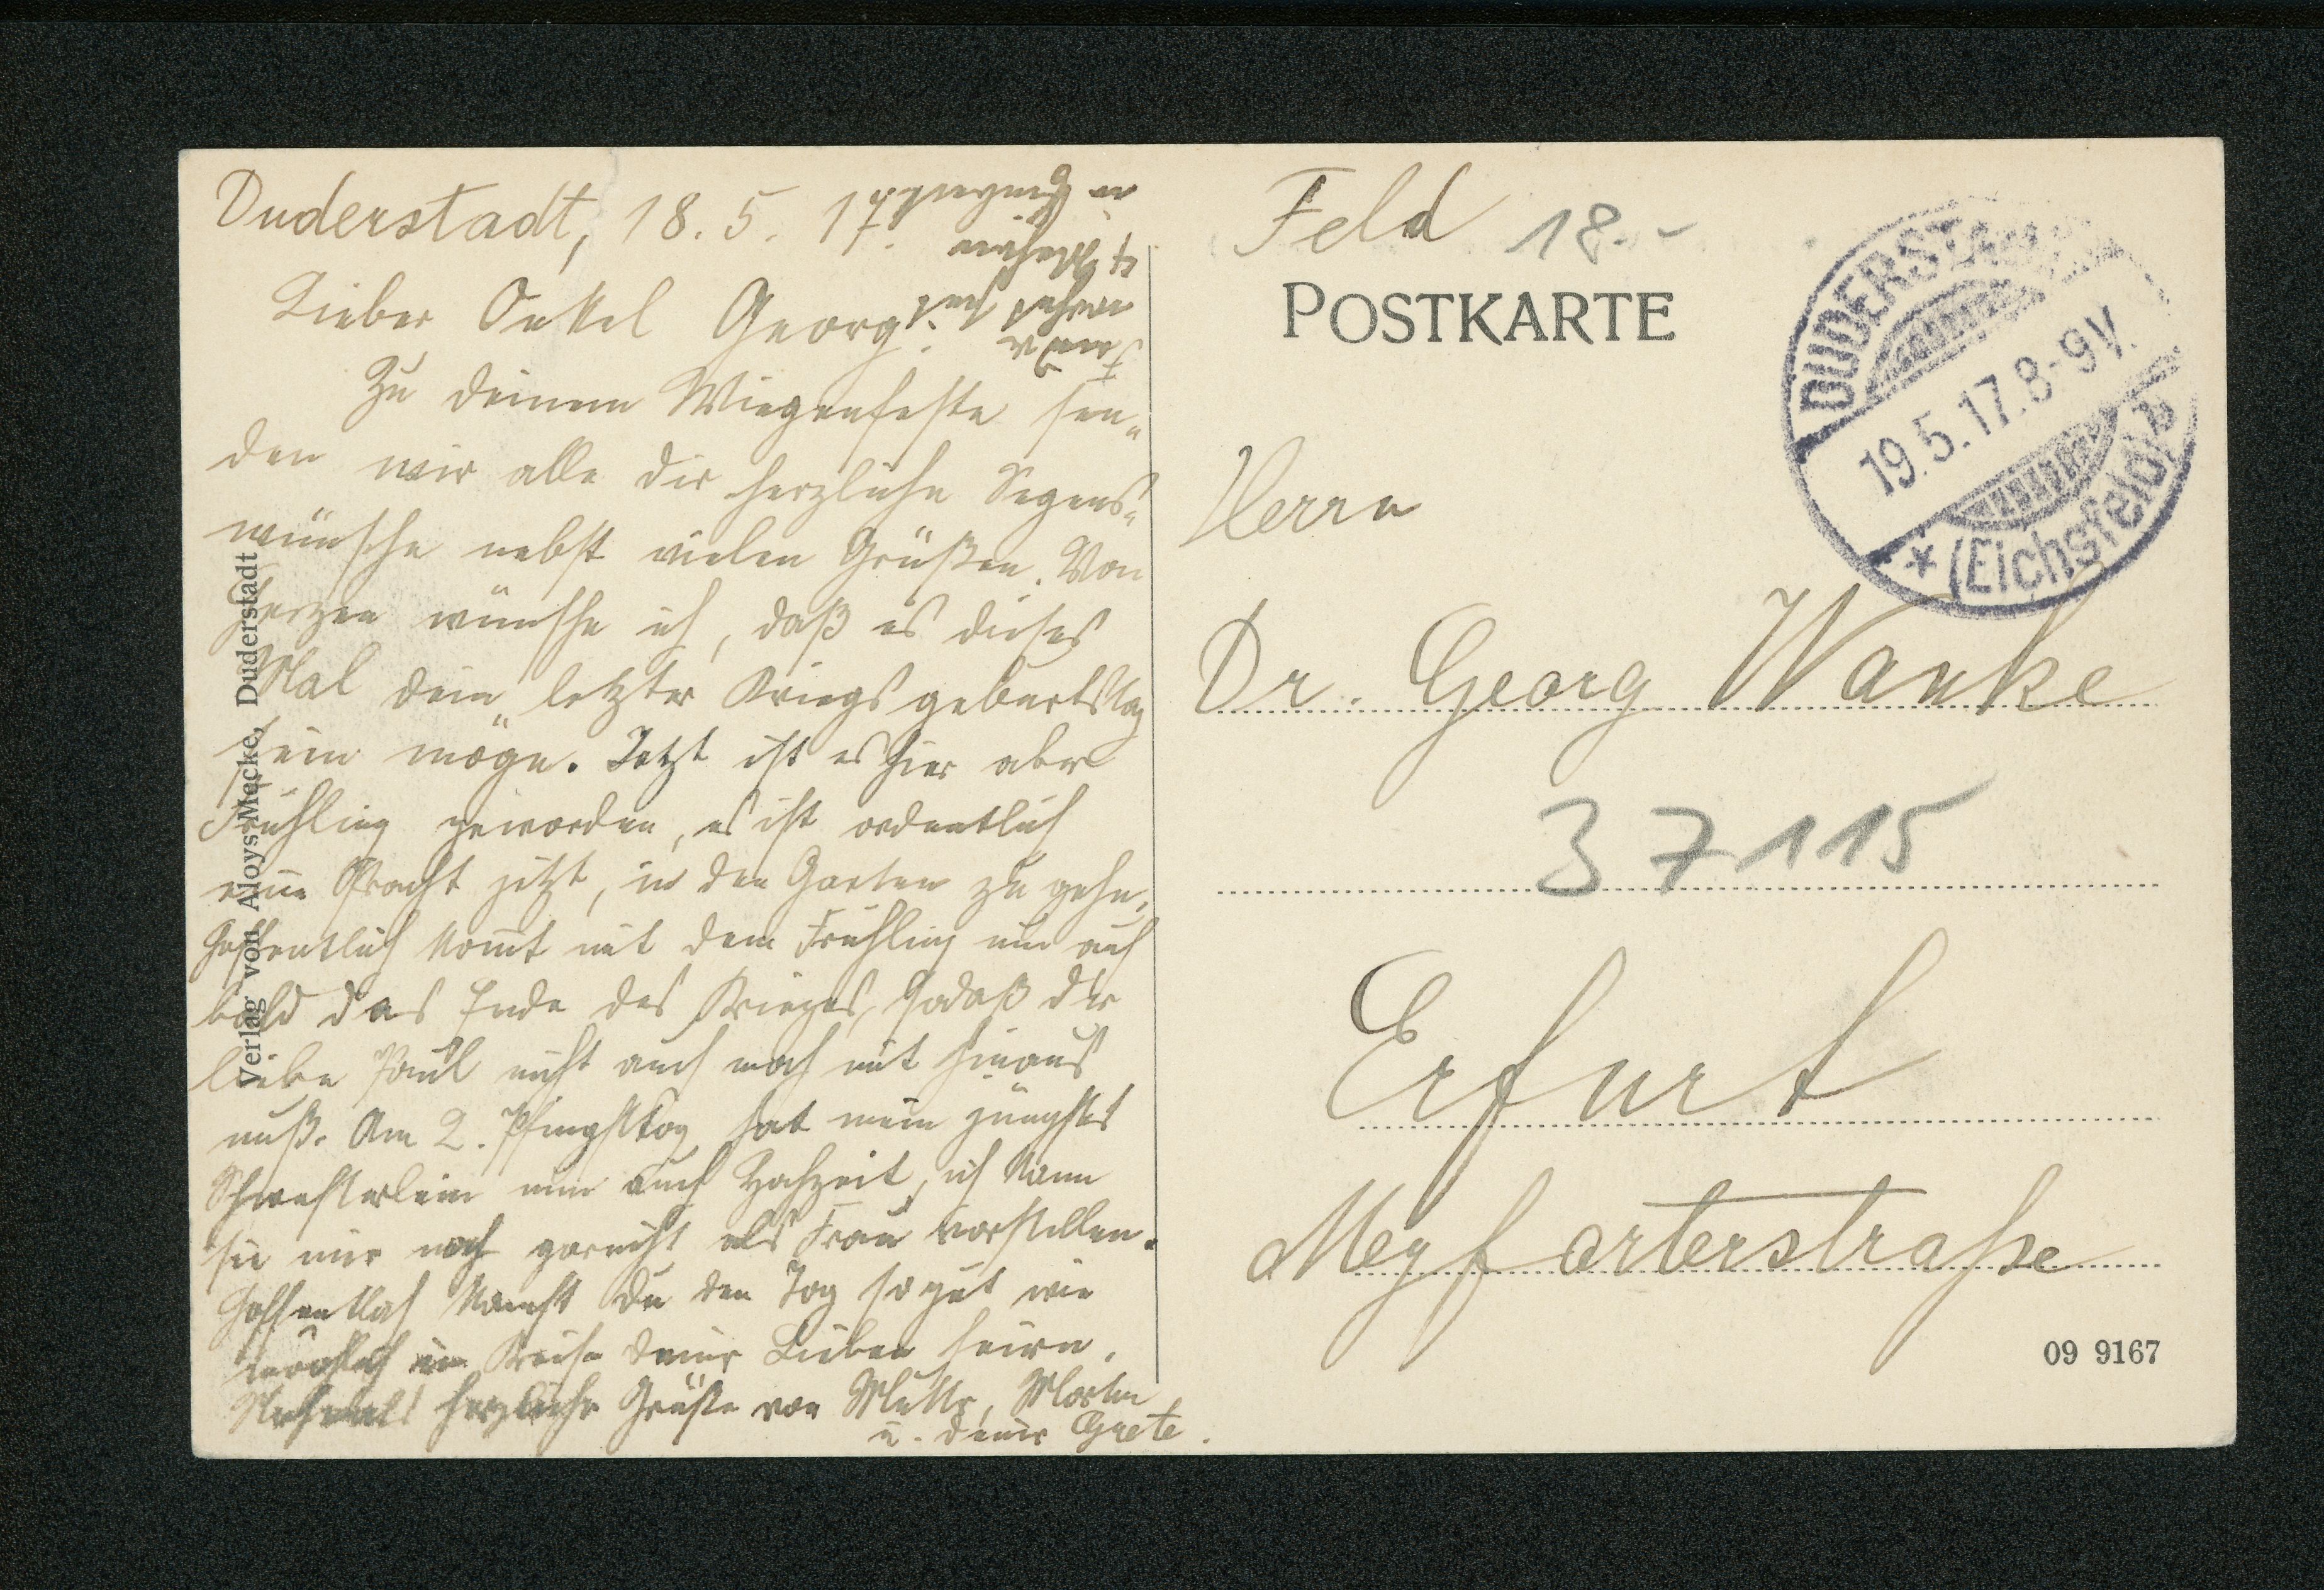 Duderstadt, 18. 5. 17.
Lieber Onkel Georg!
Zu deinem Wiegenfeste sen-
den wir alle dir herzliche Segens-
wünsche nebst vielen Grüßen. Von
Herzen wünsche ich, daß es dieses
Mal dein letzter Kriegsgeburtstag
sein möge. Jetzt ist es hier aber
Frühling geworden, es ist ordentlich
eine Pracht jetzt, in den Garten zu gehn,
Hoffentlich kommt mit dem Frühling nun auch
bald das Ende des Krieges, sodaß der
liebe Paul nicht auch noch mit hinaus
muß. Am 2. Pfingsttag hat mein jüngstes
Schwesterlein nun auch Hochzeit, ich kann
sie mir noch garnicht als Frau vorstellen.
Hoffentlich kannst du den Tag so gut wie
möglich im Kreise deiner Lieben feiern.
Nochmals herzliche Grüße von Mutter, Martin
u. deiner Grete.
Verlag von Aloys Mecke, Duderstadt
Feld 18.-
POSTKARTE
DUDERSTADT
19.5.17.8-9V.
* (Eichsfeld) b
Herrn
Dr. Georg Wanke
37115
Erfurt
Meyfarterstraße
09 9167